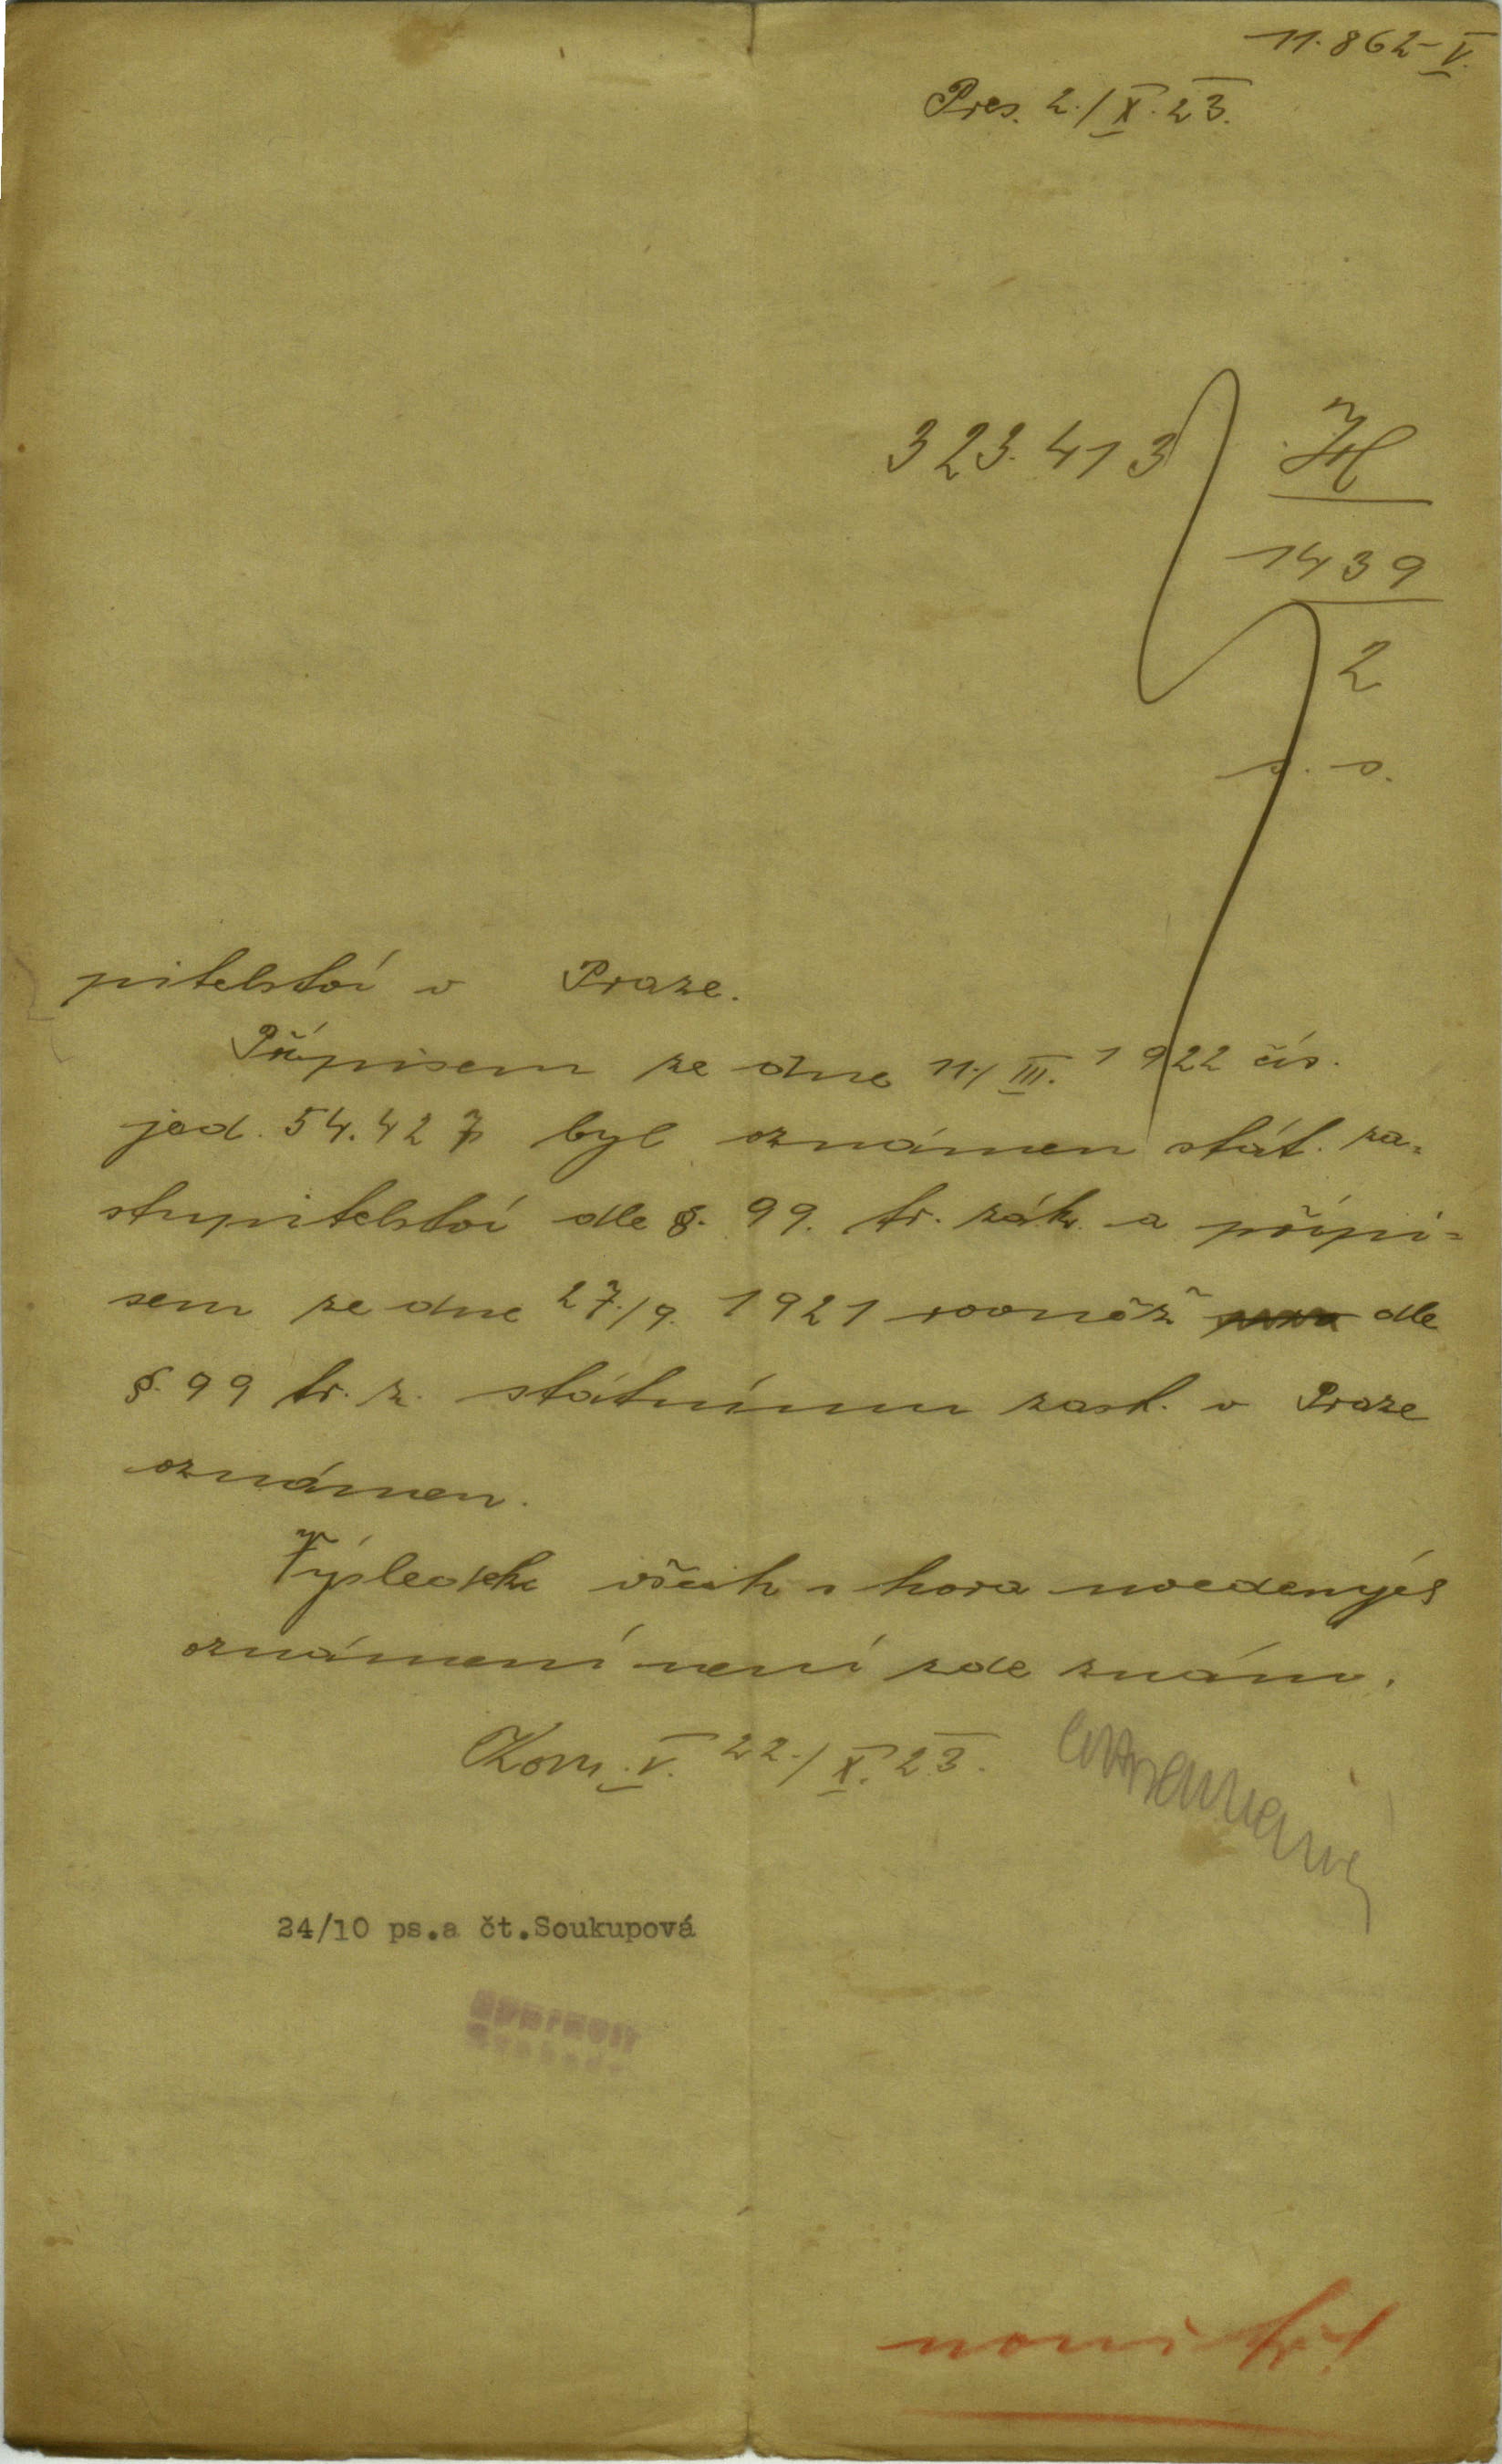 11.862-V.
Pres. 2./X. 23.
323.413 H
1439
2
s. s.
pitelství v Praze.
Přípisem ze dne 11./III. 1922 čís.
jed. 54.427 byl oznámen stát. za-
stupitelství dle §. 99. tr. zák. a přípi=
sem ze dne 27./9. 1921 rovněž dle
§. 99 tr. z. státnímu zast. v Praze
oznámen.
Výsledek všech s hora uvedených
oznámení není zde znám.
Kom. V. 22./X. 23.
24/10 ps.a čt.Soukupová